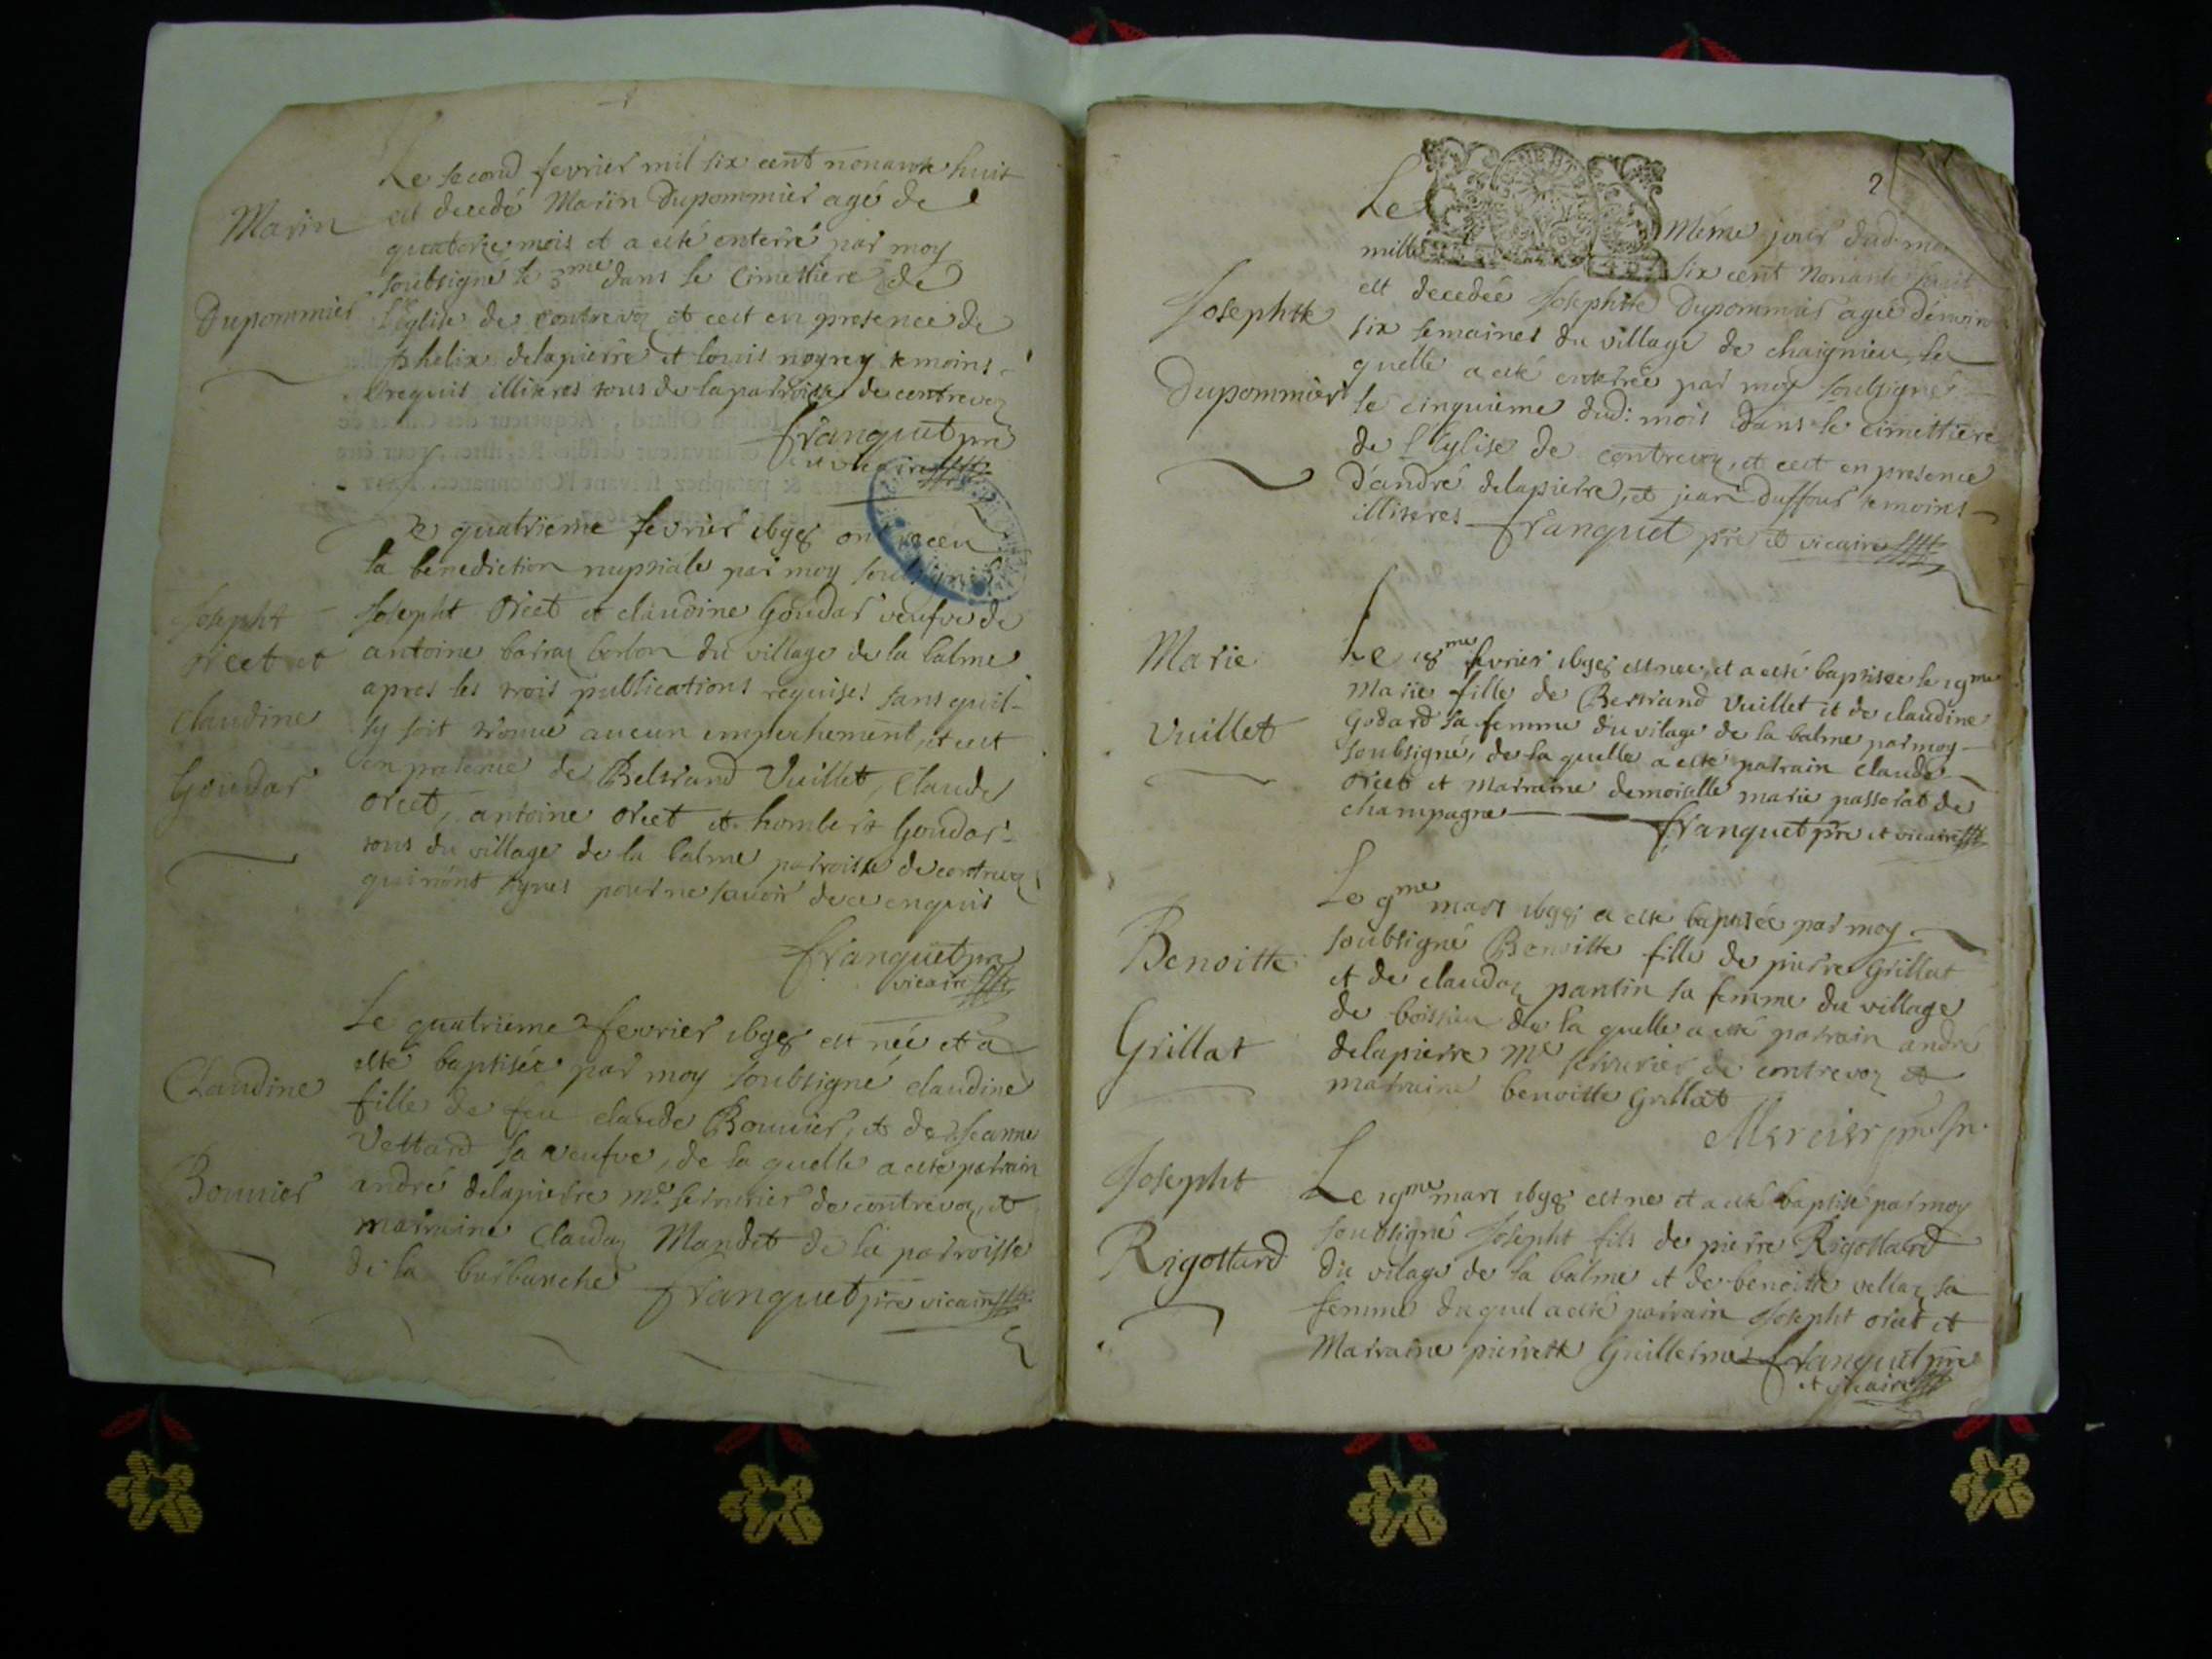 Le second fevrier mil six cent nonante huit
Marin
est decedé Marin Dupommier agé de
quatorze mois et a esté enterré par moy
soubsigné le 3me dans le Cimettiere de
Dupommier
l'Eglise de Contrevoz et cest en presence de
phelix delapierre et louis noyrey temoins
requis illiteres tous de la parroisse de contrevoz
franquet pre
et vicaire
Le quatrieme fevrier 1698 ont receu
la benediction nuptiale par moy soubsigné
Josepht
Josepht Oriet et claudine Goudar veufve de
oriet et
antoine barraz du village de la balme
Claudine
apres les trois publications requises sans quil
Goudar
sy soit trouvé aucun empechement, et cest
en presence de Beltrand Vuillet, Claude
Oriet, antoine Oriet et humbert Goudar
tous du village de la balme parroisse de contrevoz
qui n'ont signes pour ne scavoir de ce enquis
franquet pre
vicaire
Le quatrieme fevrier 1698 est née et a
esté baptisée par moy soubsigné claudine
Claudine
fille de feu claude Bonnier, et de Jeanne
Vettard sa veufve, de la quelle a esté parrain
Bonnier
andré delapierre Me serrurier de contrevoz, et
marraine Clauda Mandet de la parroisse
de la burbanche franquet pre vicaire
2
Le Méme jour dud. mois
mille six cent Nonante huit
est decedée Josephtte Dupommier agée d'environ
Josephtte
six semaines du village de chaignieu, la
quelle a esté enterrée par moy soubsigné
Dupommier
le cinquieme dud: mois dans le cimettiere
de l'Eglise de contrevoz, et cest en presence
d'andré delapierre, et jean duffour temoins
illiteres franquet pre et vicaire
Marie
Le 18me fevrier 1698 est nee, et a esté baptisée le 19me
Marie fille de Bertrand Vuillet et de claudine
Vuillet
Godard sa femme du vilage de la balme par moy
soubsigné, de la quelle a esté parrain claude
Oriet et Marraine demoiselle marie passerat de
champagne franquet pre et vicaire
Le 9me mars 1698 a esté baptisée par moy
Benoitte
soubsigné Benoitte fille de pierre Grillat
et de claudaz pantin sa femme du village
Grillat
de boissieu de la quelle a esté parrain andré
delapierre Me serrurier de contrevoz et
marraine benoitte Grillat
Mercier
Josepht
Le 19me mars 1698 est ne et a esté baptisé par moy
soubsigné Josepht fils de pierre Rigottard
Rigottard
du vilage de la balme et de benoitte vellaz sa
femme duquel a esté parrain Josepht oriet et
Marraine pierrette Guillerme franquet pre
et vicaire